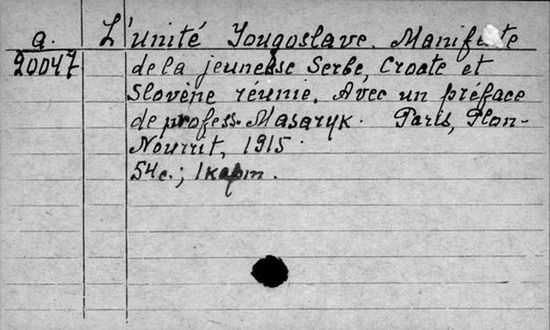 a. L'unité Yougoslave. Manifeste
20047 de la jeunesse Serbe, Croate et
Slovène réunie. Avec un préface
de profess. Masaryk. Paris, Plon-
Nourrit, 1915.
54c.; 1 карт.